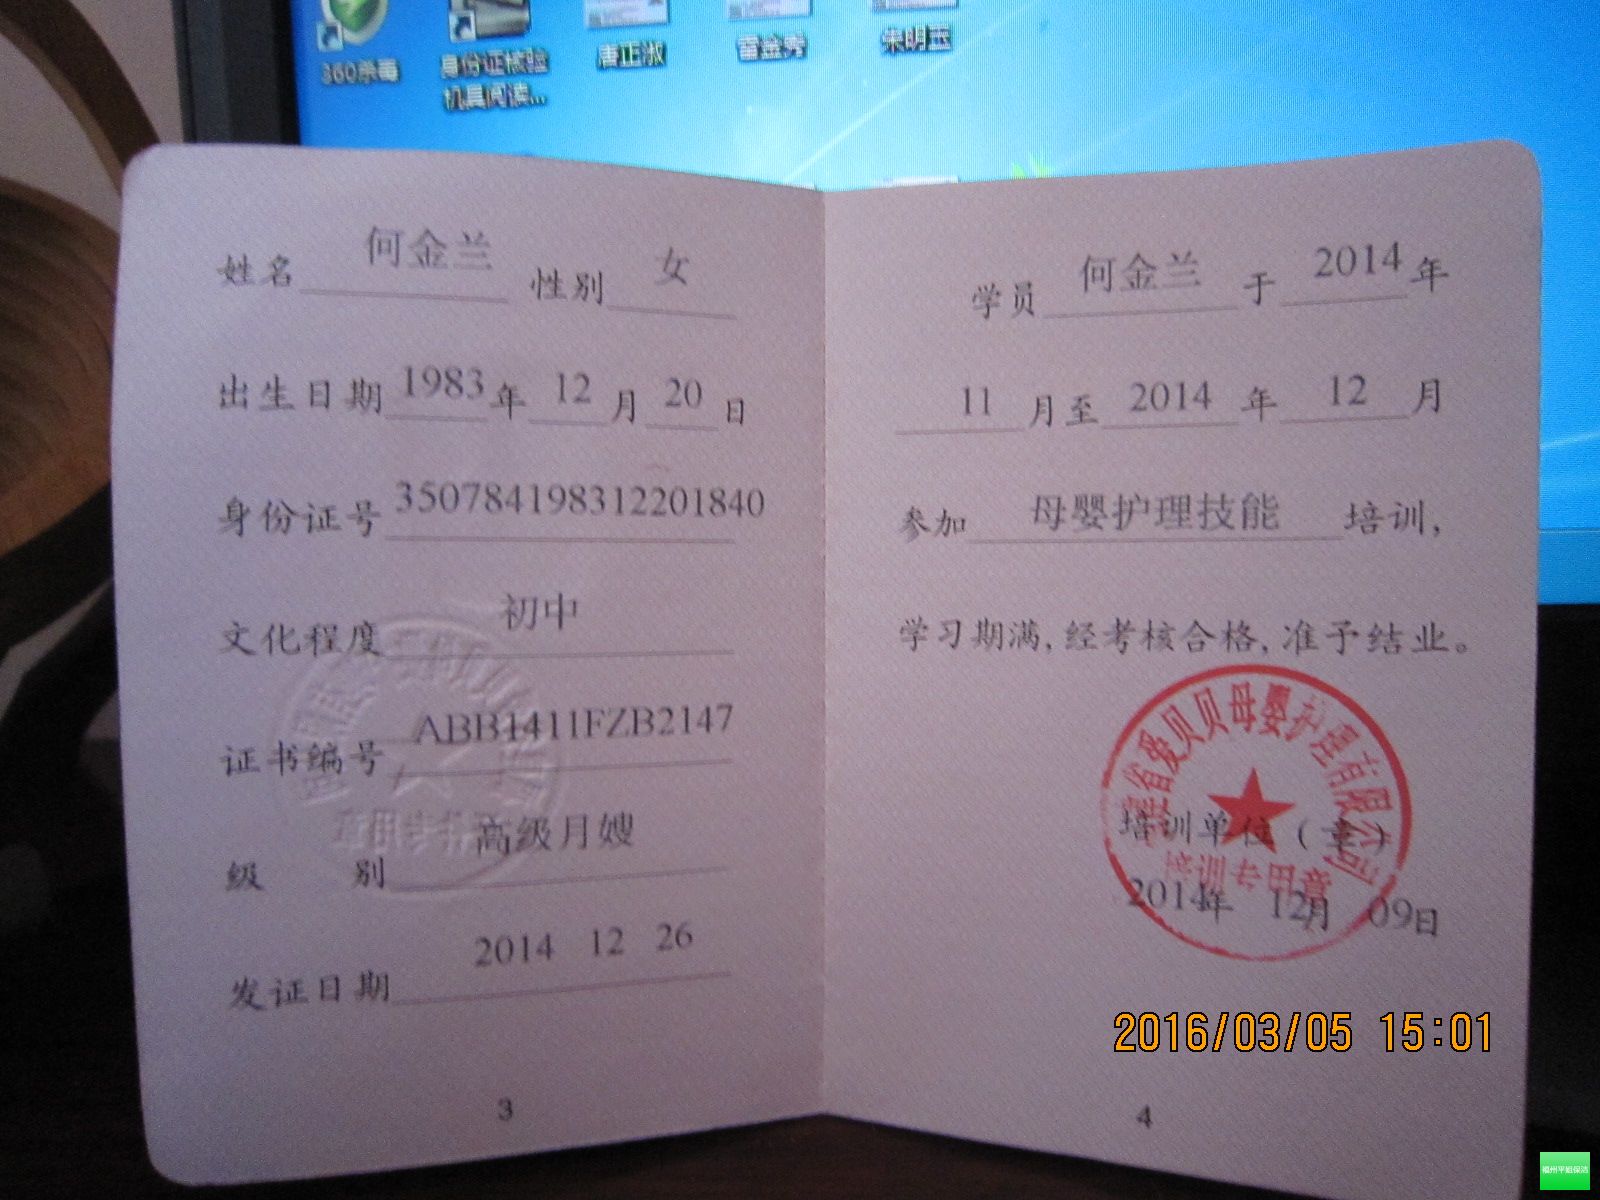 360杀毒
身份证核验
机具阅读...
唐正淑
雷金秀
朱明玉
姓名 何金兰 性别 女
出生日期 1983 年 12 月 20 日
身份证号 350784198312201840
文化程度 初中
证书编号 ABB1411FZB2147
级 别 高级月嫂
发证日期 2014 12 26
3
学员 何金兰 于 2014 年
11 月至 2014 年 12 月
参加 母婴护理技能 培训,
学习期满,经考核合格,准予结业。
福建省爱贝贝母婴护理有限公司
培训单位(章)
培训专用章
2014年 12月 09日
2016/03/05 15:01
4
福州平姐保洁